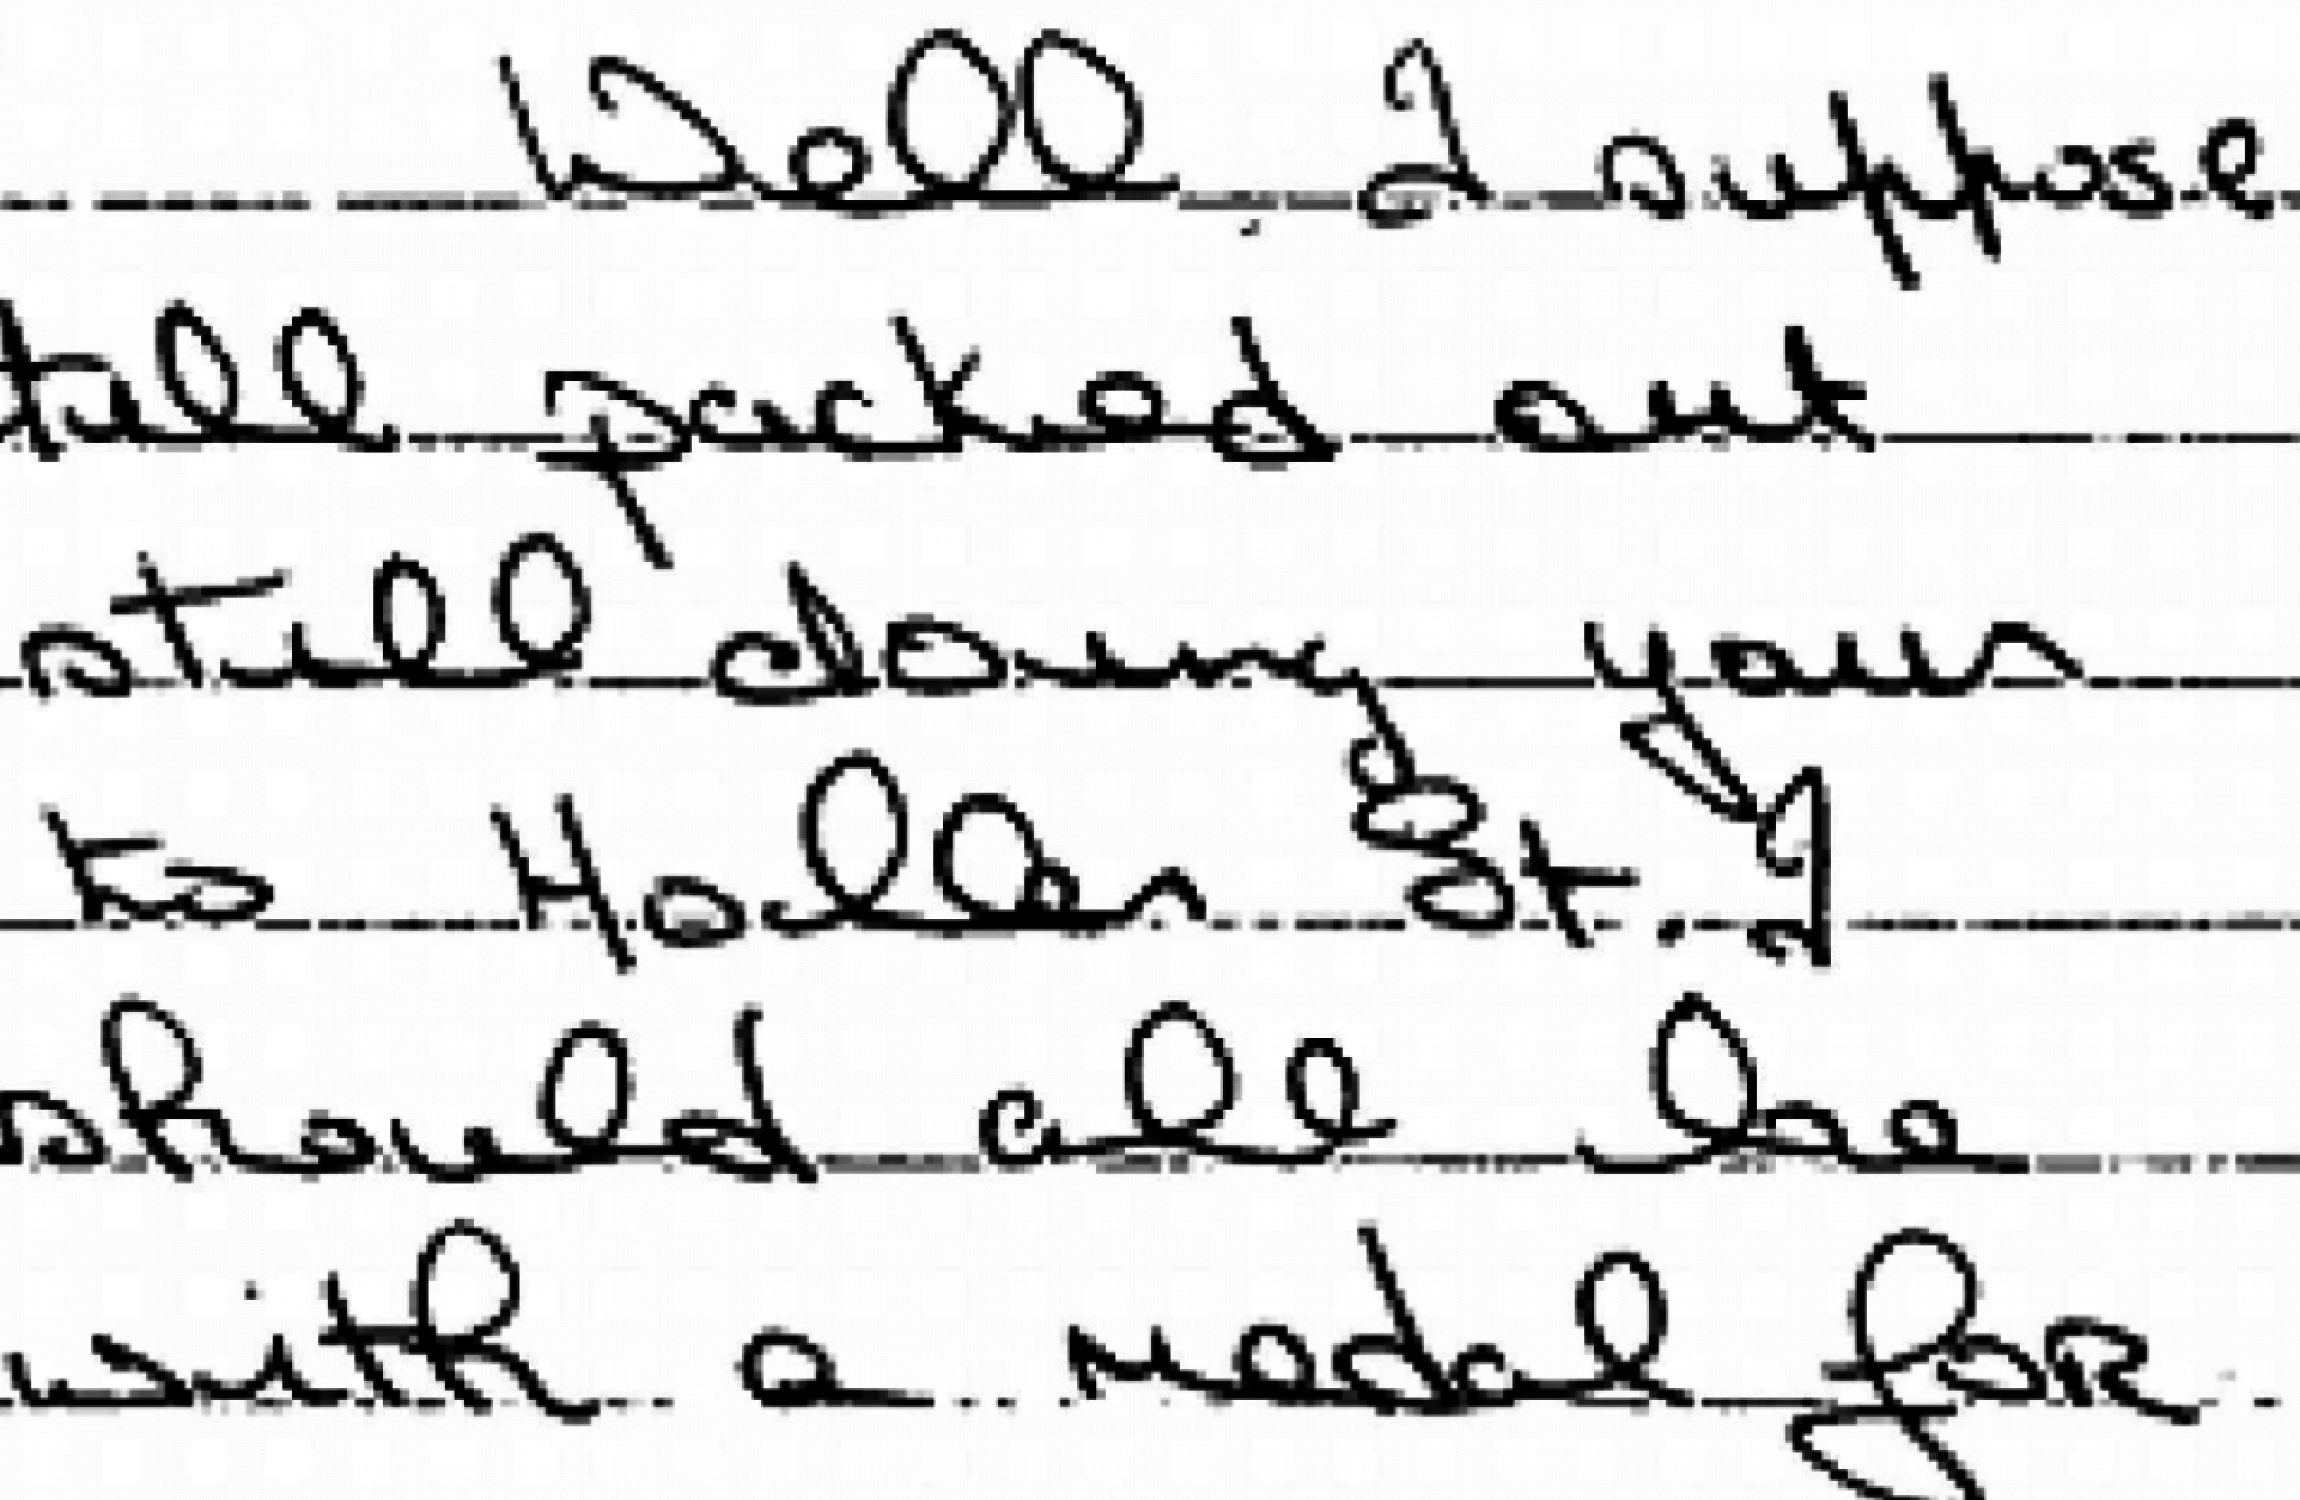 Well I suppose
packed out
still doing your
to St. I
should be
with a medal for